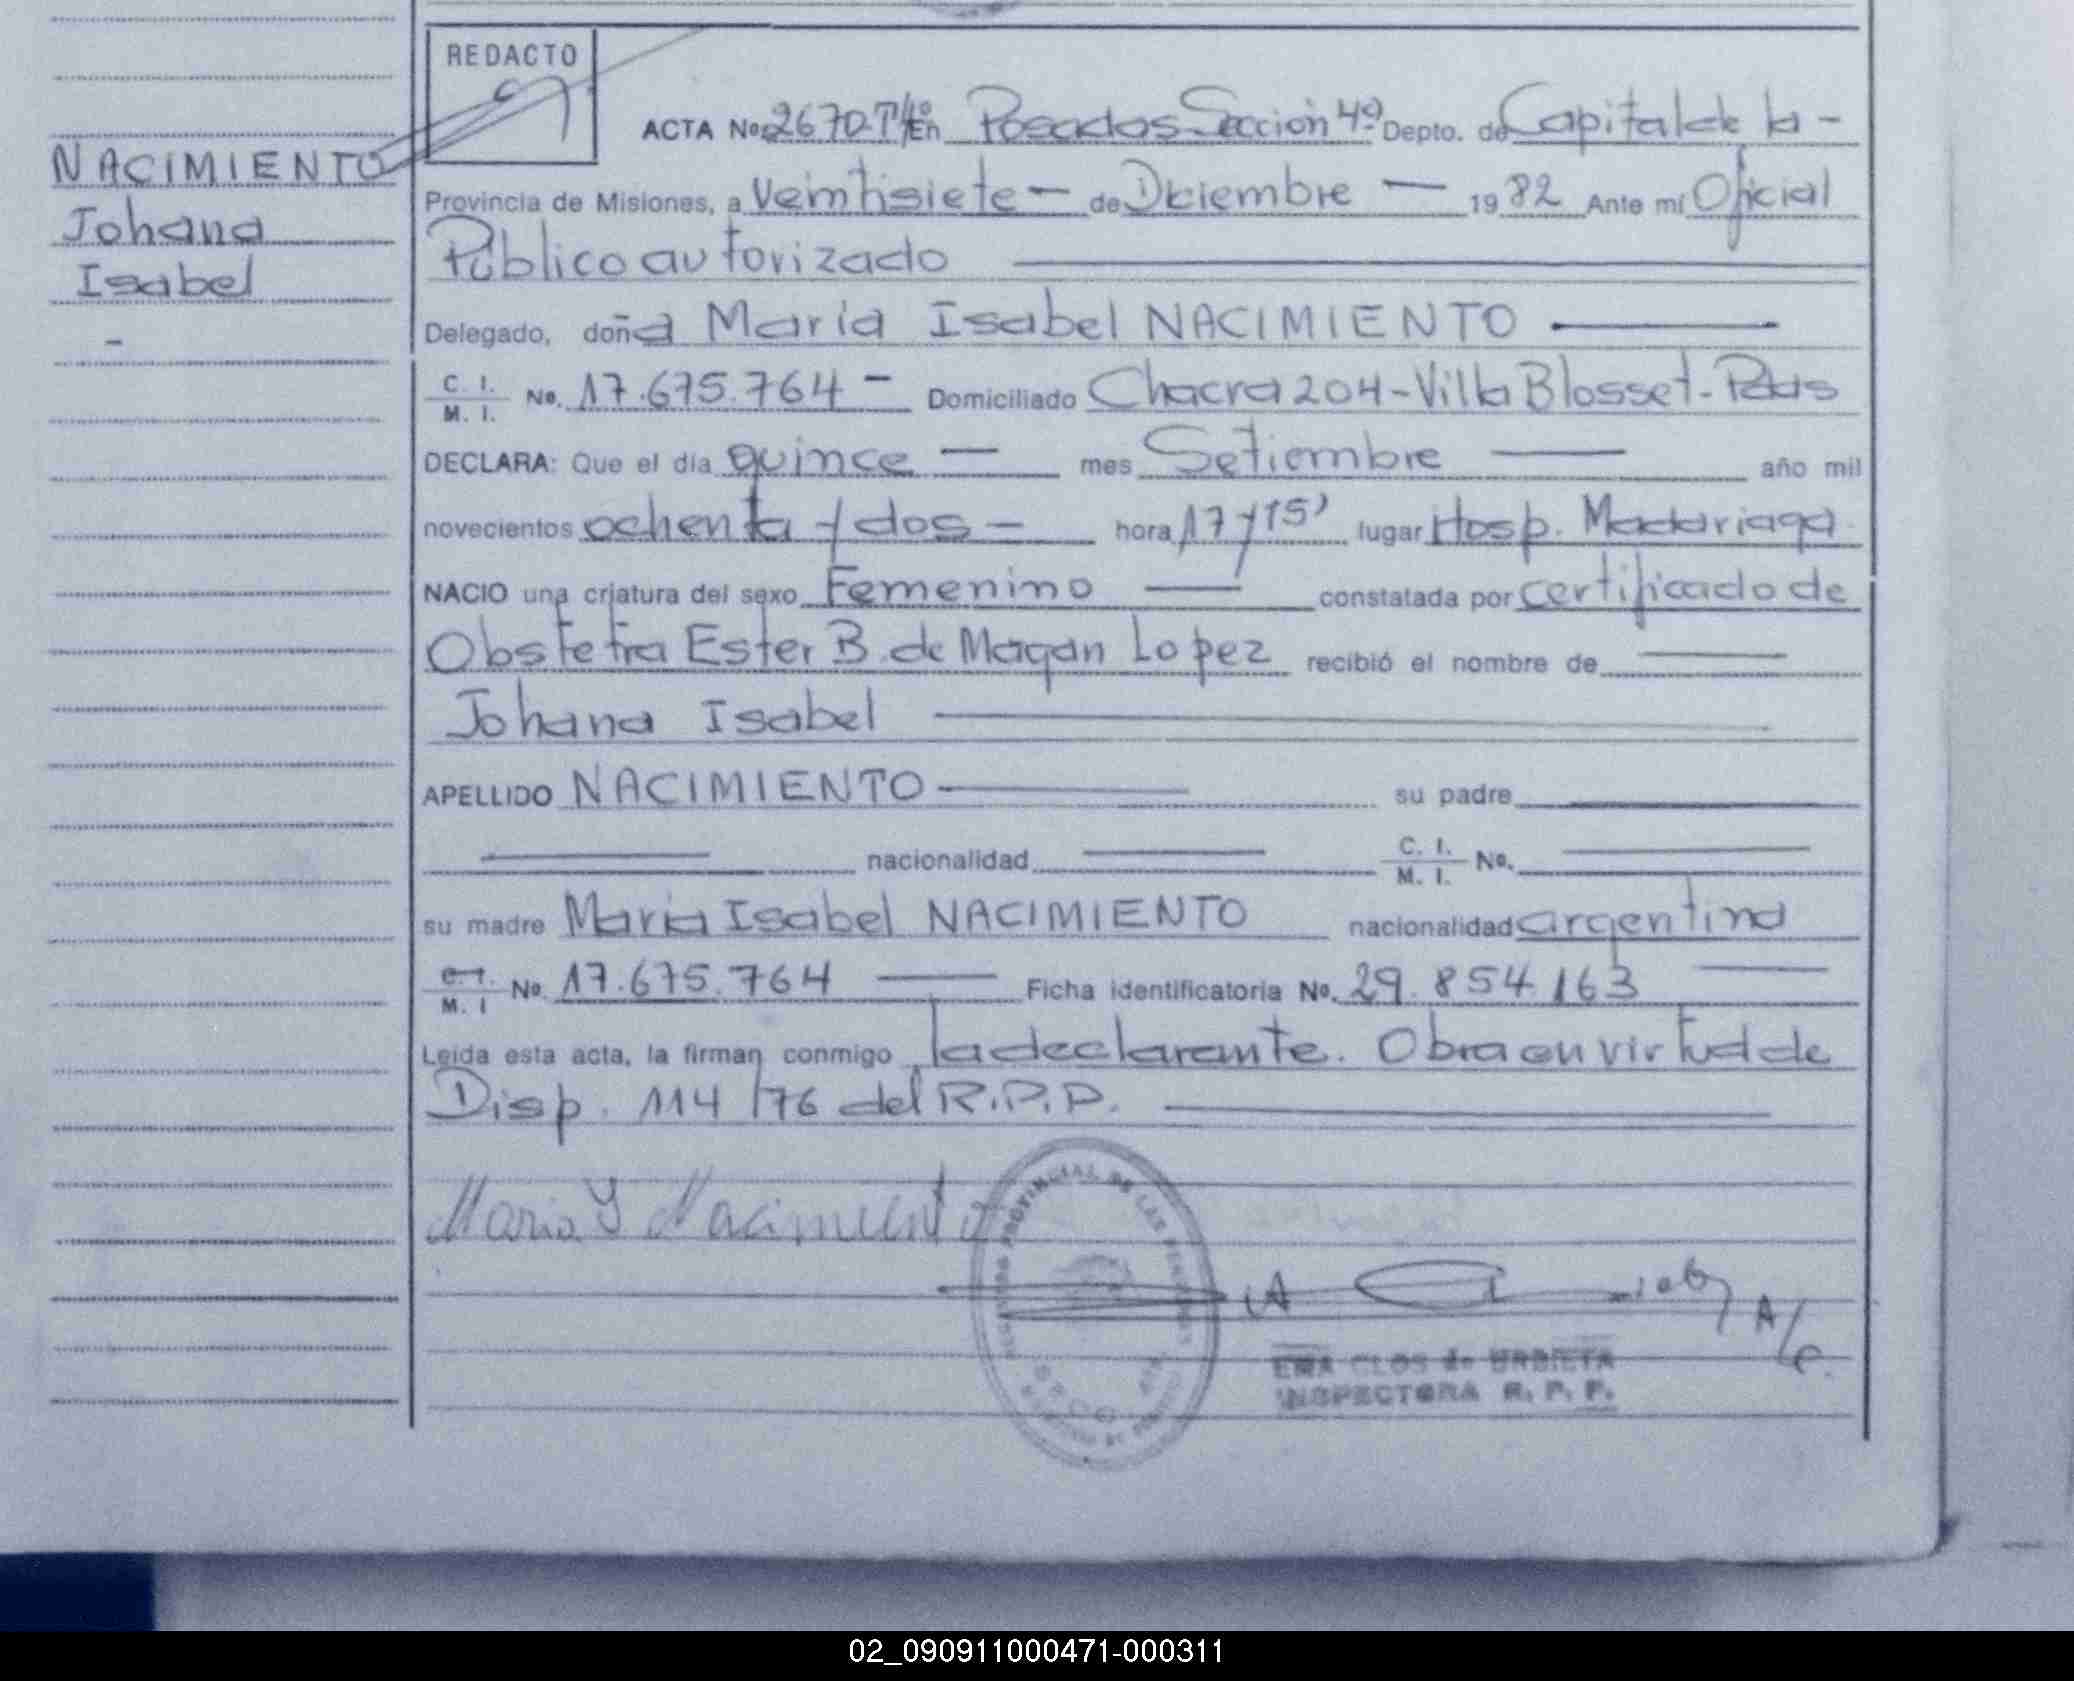 REDACTO
ACTA No 2670-Tº/4º En Posadas Sección 4º Depto. de Capital de la -
NACIMIENTO
Johana
Isabel
-
Provincia de Misiones, a Veintisiete — de Diciembre — 1982 Ante mí Oficial
Público autorizado
Delegado, doña María Isabel NACIMIENTO
C. I. M. I. No. 17.675.764 - Domiciliado Chacra 204-Villa Blosset-Pdas
DECLARA: Que el día quince — mes Setiembre — año mil
novecientos ochenta y dos - hora 17 y 15' lugar Hosp. Madariaga.
NACIO una criatura del sexo Femenino — constatada por certificado de
Obstetra Ester B. de Magan Lopez recibió el nombre de —
Johana Isabel
APELLIDO NACIMIENTO — su padre
nacionalidad C. I. M. I. No.
su madre María Isabel NACIMIENTO nacionalidad argentina
C. I. M. I No. 17.675.764 — Ficha identificatoria No. 29.854.163 —
Leida esta acta, la firman conmigo la declarante. Obra en virtud de
Disp. 114/76 del R.P.P.
Maria Y Nacimiento
REGISTRO PROVINCIAL DE LAS PERSONAS
A/c.
EMA CLOS de URBIETA
INSPECTORA R. P. P.
02_090911000471-000311